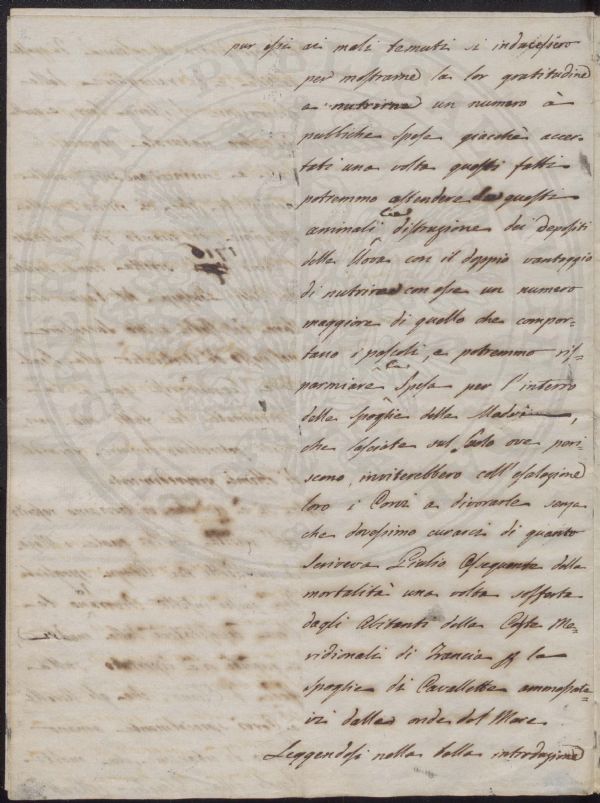 pur essi ai mali temuti si inducessero
per mostrarne la lor gratitudine
a nutrirne un numero à
pubbliche spese giacchè accer-
tati una volta questi fatti
potremmo attendere da questi
animali la distruzione dei depositi
delle Uova con il doppio vantaggio
di nutrire con esse un numero
maggiore di quello che compor-
tano i pascoli, e potremmo ris-
parmiare la spesa per l'interro
delle spoglie delle Madri,
che lasciate sul suolo ove peri-
scono, inviterebbero coll'esalazione
loro i Corvi a divorarle senza
che dovessimo curarci di quanto
scriveva Giulio Ossequente della
mortalità una volta sofferta
dagli Abitanti delle Coste Me-
ridionali di Francia per le
spoglie di Cavallette ammassate-
vi dalle onde del Mare.
Leggendosi nella bella introduzione